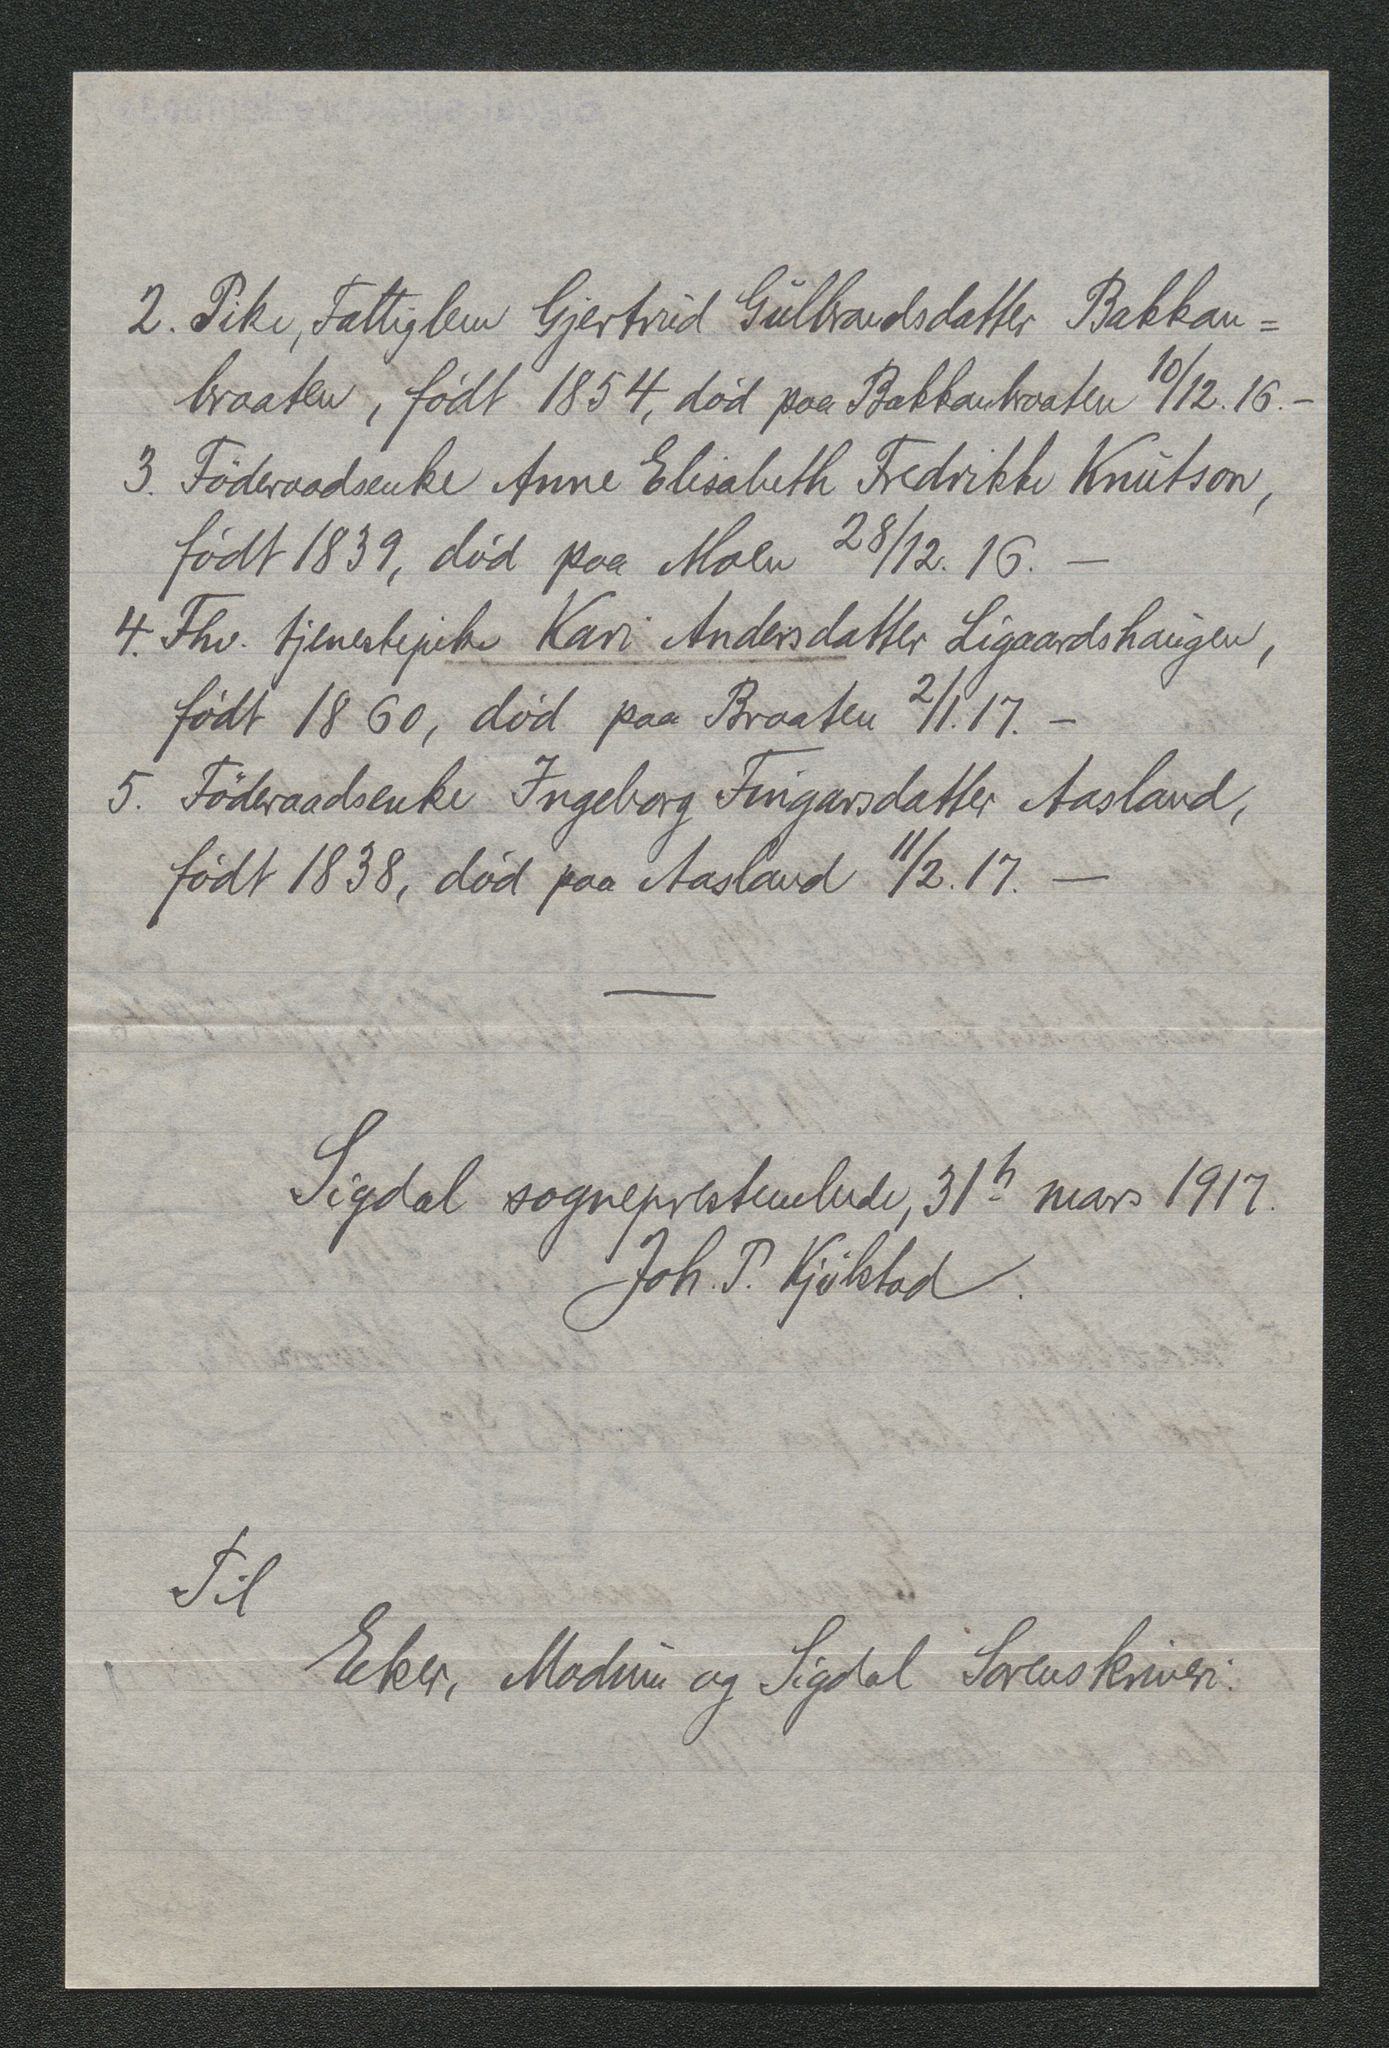 2. Pike, Fattiglem Gjertrud Gulbrandsdatter Bakkan=
braaten, født 1854, død paa Bakkanbraaten 10/12.16.–
3. Föderaadsenke Anne Elisabeth Fredrikke Knutson,
født 1839, død paa Moen 28/12.16. –
4. Fhv. tjenestepike Kari Andersdatter Ligaardshaugen,
født 1860, død paa Braaten 2/1.17. –
5. Föderaadsenke Ingeborg Fingarsdatter Aasland,
født 1838, død paa Aasland 11/2.17. –
Sigdal sogneprestembede, 31te mars 1917.
Joh. P. Kjølstad.
Til
Eker, Modum og Sigdal Sorenskriveri.